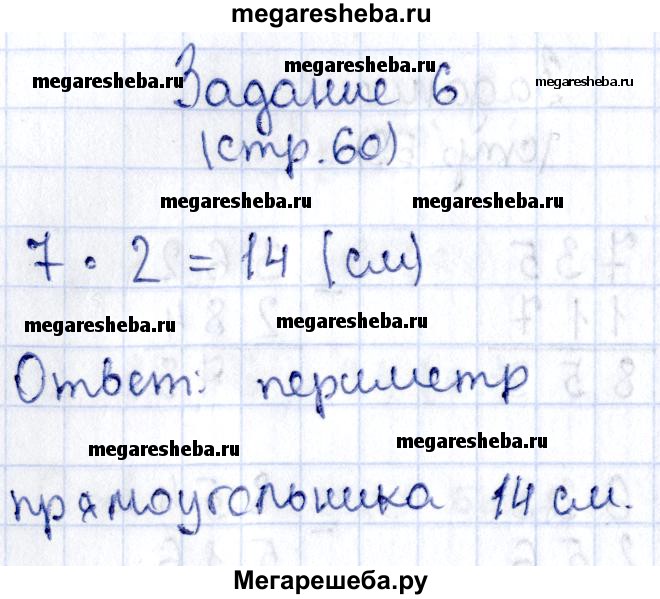 megaresheba.ru
megaresheba.ru megaresheba.ru megaresheba.ru
Задание 6
(стр. 60)
megaresheba.ru megaresheba.ru
7 · 2 = 14 (см)
megaresheba.ru megaresheba.ru
Ответ: периметр
megaresheba.ru megaresheba.ru
прямоугольника 14 см.
Мегарешеба.ру